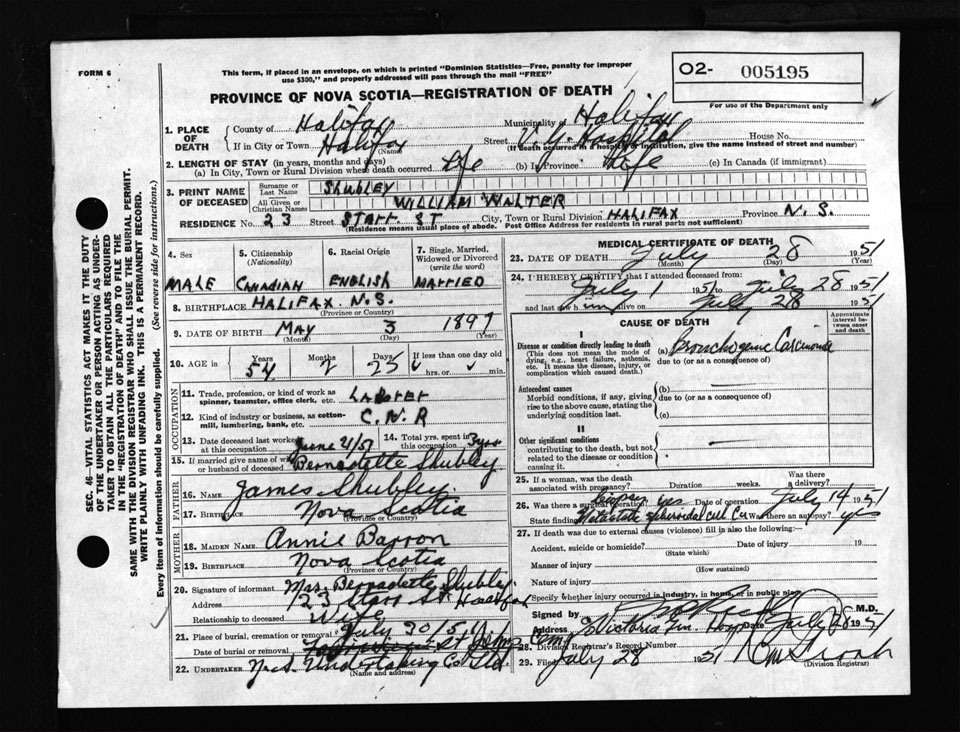 FORM 6
This form, if placed in an envelope, on which is printed "Dominion Statistics—Free, penalty for improper
use $300," and properly addressed will pass through the mail "FREE"
O2- 005195
For use of the Department only
PROVINCE OF NOVA SCOTIA—REGISTRATION OF DEATH
1. PLACE OF DEATH
County of Halifax Municipality of Halifax
If in City or Town Halifax (Name) Street V. G. Hospital House No.
(If death occurred in hospital or institution, give the name instead of street and number)
2. LENGTH OF STAY (in years, months and days)
(a) In City, Town or Rural Division where death occurred Life (b) In Province Life (c) In Canada (if immigrant)
3. PRINT NAME OF DECEASED
Surname or Last Name SHUBLEY
All Given or Christian Names WILLIAM WALTER
RESIDENCE No. 23 Street STARR ST City, Town or Rural Division HALIFAX Province N.S.
(Residence means usual place of abode. Post Office Address for residents in rural parts not sufficient)
4. Sex MALE
5. Citizenship (Nationality) CANADIAN
6. Racial Origin ENGLISH
7. Single, Married, Widowed or Divorced (write the word) MARRIED
8. BIRTHPLACE HALIFAX N.S.
(Province or Country)
9. DATE OF BIRTH MAY 3 1897
(Month) (Day) (Year)
10. AGE in Years 54 Months 2 Days 25 If less than one day old hrs. or min.
OCCUPATION
11. Trade, profession, or kind of work as spinner, teamster, office clerk, etc.
12. Kind of industry or business, as cotton-mill, lumbering, bank, etc. C.N.R
13. Date deceased last worked at this occupation June 21/51
14. Total yrs. spent in this occupation 3 yrs
15. If married give name of wife or husband of deceased Bernadette Shubley
FATHER
16. NAME James Shubley
17. BIRTHPLACE Nova Scotia
(Province or Country)
MOTHER
18. MAIDEN NAME Annie Barron
19. BIRTHPLACE Nova Scotia
(Province or Country)
20. Signature of informant Mrs. Bernadette Shubley
Address 23 Starr St. Halifax
Relationship to deceased Wife
21. Place of burial, cremation or removal July 30/51
Date of burial or removal St Johns Cem
22. UNDERTAKER N.S. Undertaking Co Ltd
(Name and address)
MEDICAL CERTIFICATE OF DEATH
23. DATE OF DEATH July 28 1951
(Month) (Day) (Year)
24. I HEREBY CERTIFY that I attended deceased from
July 1 1951 to July 28 1951
and last saw him alive on July 28 1951
CAUSE OF DEATH
Approximate interval between onset and death
I
Disease or condition directly leading to death (a) Bronchogenic Carcinoma
(This does not mean the mode of dying, e.g., heart failure, asthenia, etc. It means the disease, injury, or complication which caused death.)
due to (or as a consequence of)
Antecedent causes (b)
Morbid conditions, if any, giving rise to the above cause, stating the underlying condition last.
due to (or as a consequence of)
(c)
II
Other significant conditions
contributing to the death, but not related to the disease or condition causing it.
25. If a woman, was the death associated with pregnancy? Duration weeks. Was there a delivery?
26. Was there a surgical operation? biopsy yes Date of operation July 14 1951
State findings Metastatic spheroidal cell Ca Was there an autopsy? yes
27. If death was due to external causes (violence) fill in also the following:—
Accident, suicide or homicide? Date of injury 19
(State which)
Manner of injury
(How sustained)
Nature of injury
Specify whether injury occurred in industry, in home, or in public place
Signed by M.D.
Address Victoria Gen Hosp Date July 28 1951
28. Division Registrar's Record Number
29. Filed July 28 1951
(Division Registrar)
SEC. 46—VITAL STATISTICS ACT MAKES IT THE DUTY
OF THE UNDERTAKER OR PERSON ACTING AS UNDER-
TAKER TO OBTAIN ALL THE PARTICULARS REQUIRED
IN THE "REGISTRATION OF DEATH" AND TO FILE THE
SAME WITH THE DIVISION REGISTRAR WHO SHALL ISSUE THE BURIAL PERMIT.
WRITE PLAINLY WITH UNFADING INK. THIS IS A PERMANENT RECORD.
Every item of information should be carefully supplied. (See reverse side for instructions.)